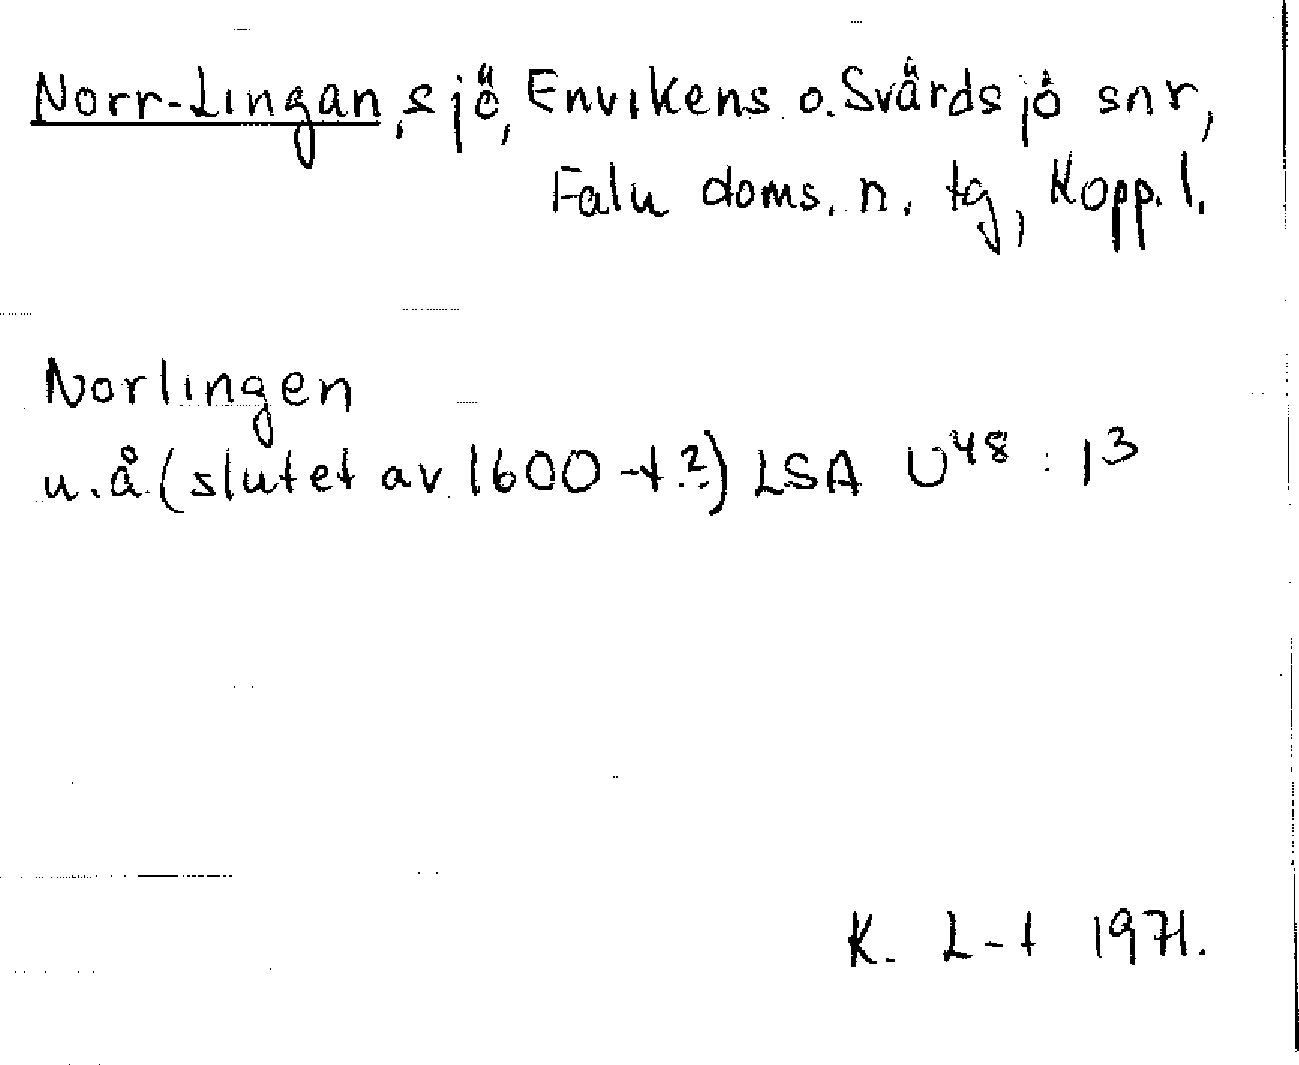 Norr-Lingan, sjö, Envikens o. Svärdsjö snr,
Falu doms. n. tg, Kopp. l.
Norlingen
u.å. (slutet av 1600-t.?) LSA U⁴⁸ : 1³
K. L-t 1971.